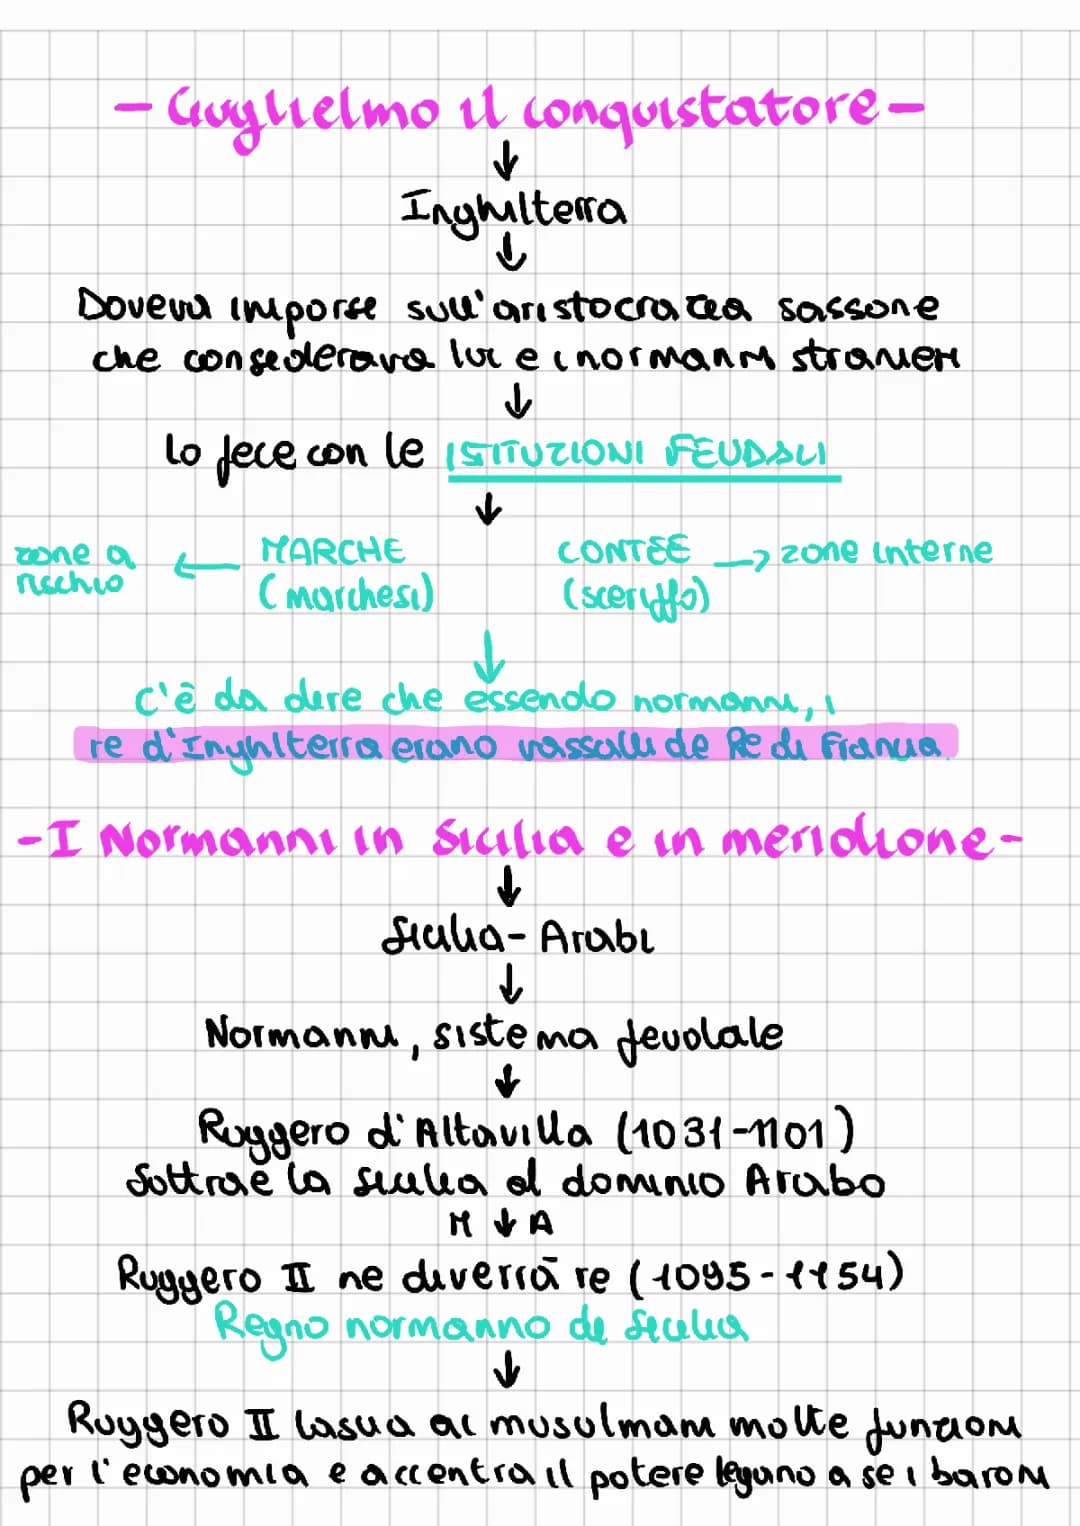 - Guglielmo il conquistatore -
↓
Inghilterra
↓
Doveva imporse sull'aristocrazia sassone
che considerava lui e i normanni stranieri
↓
lo fece con le ISTITUZIONI FEUDALI
↓
zone a rischio ← MARCHE (marchesi)
CONTEE (sceriffo) → zone interne
↓
C'è da dire che essendo normanni, i
re d'Inghilterra erano vassalli de Re di Francia
- I Normanni in Sicilia e in meridione -
↓
Sicilia - Arabi
↓
Normanni, sistema feudale
↓
Ruggero d'Altavilla (1031-1101)
Sottrae la Sicilia al dominio Arabo
M ↓ A
Ruggero II ne diverrà re (1095-1154)
Regno normanno di Sicilia
↓
Ruggero II lascia ai musulmani molte funzioni
per l'economia e accentra il potere legano a se i baroni